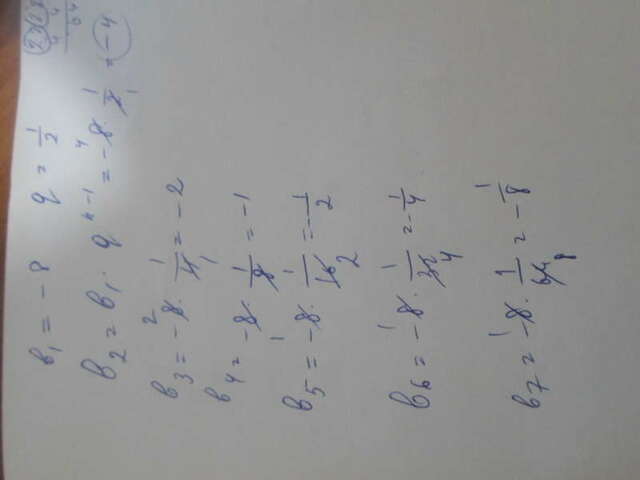 в₁ = -8   q = 1/2
в₂ = в₁ · qⁿ⁻¹ = -8 · 1/2 = -4
в₃ = -8 · 1/4 = -2
в₄ = -8 · 1/8 = -1
в₅ = -8 · 1/16 = -1/2
в₆ = -8 · 1/32 = -1/4
в₇ = -8 · 1/64 = -1/8